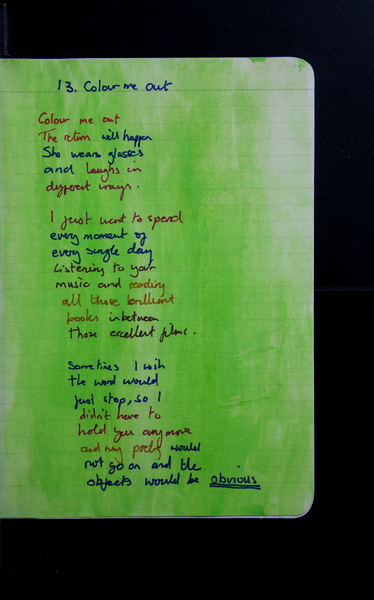 13. Colour me out
Colour me out
The return will happen
She wears glasses
and laughs in
different ways.
I just want to spend
every moment of
every single day
Listening to your
music and reading
all those brilliant
books inbetween
those excellent films.
Sometimes I wish
the word would
just stop, so I
didn't have to
hold you anymore
and my poetry would
not go on and the
objects would be obvious